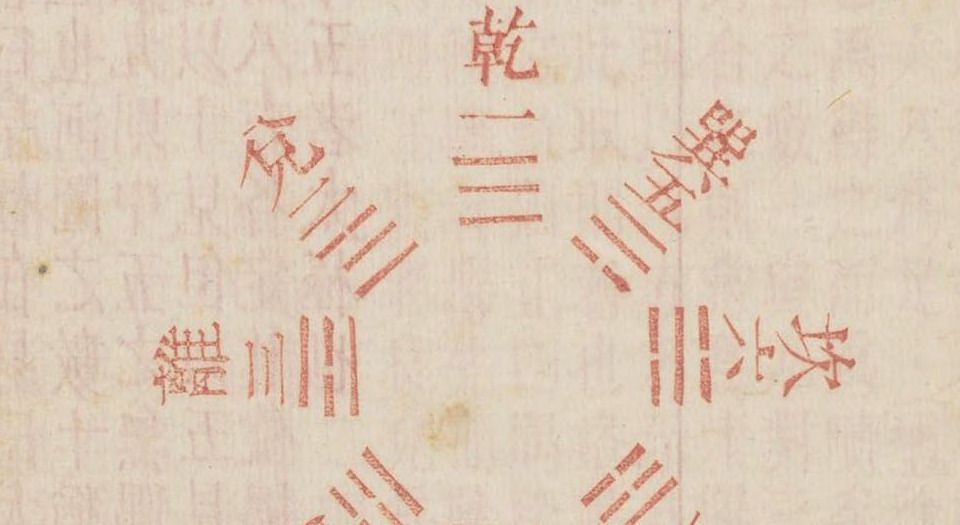 乾一
兌二
離三
巽五
坎六